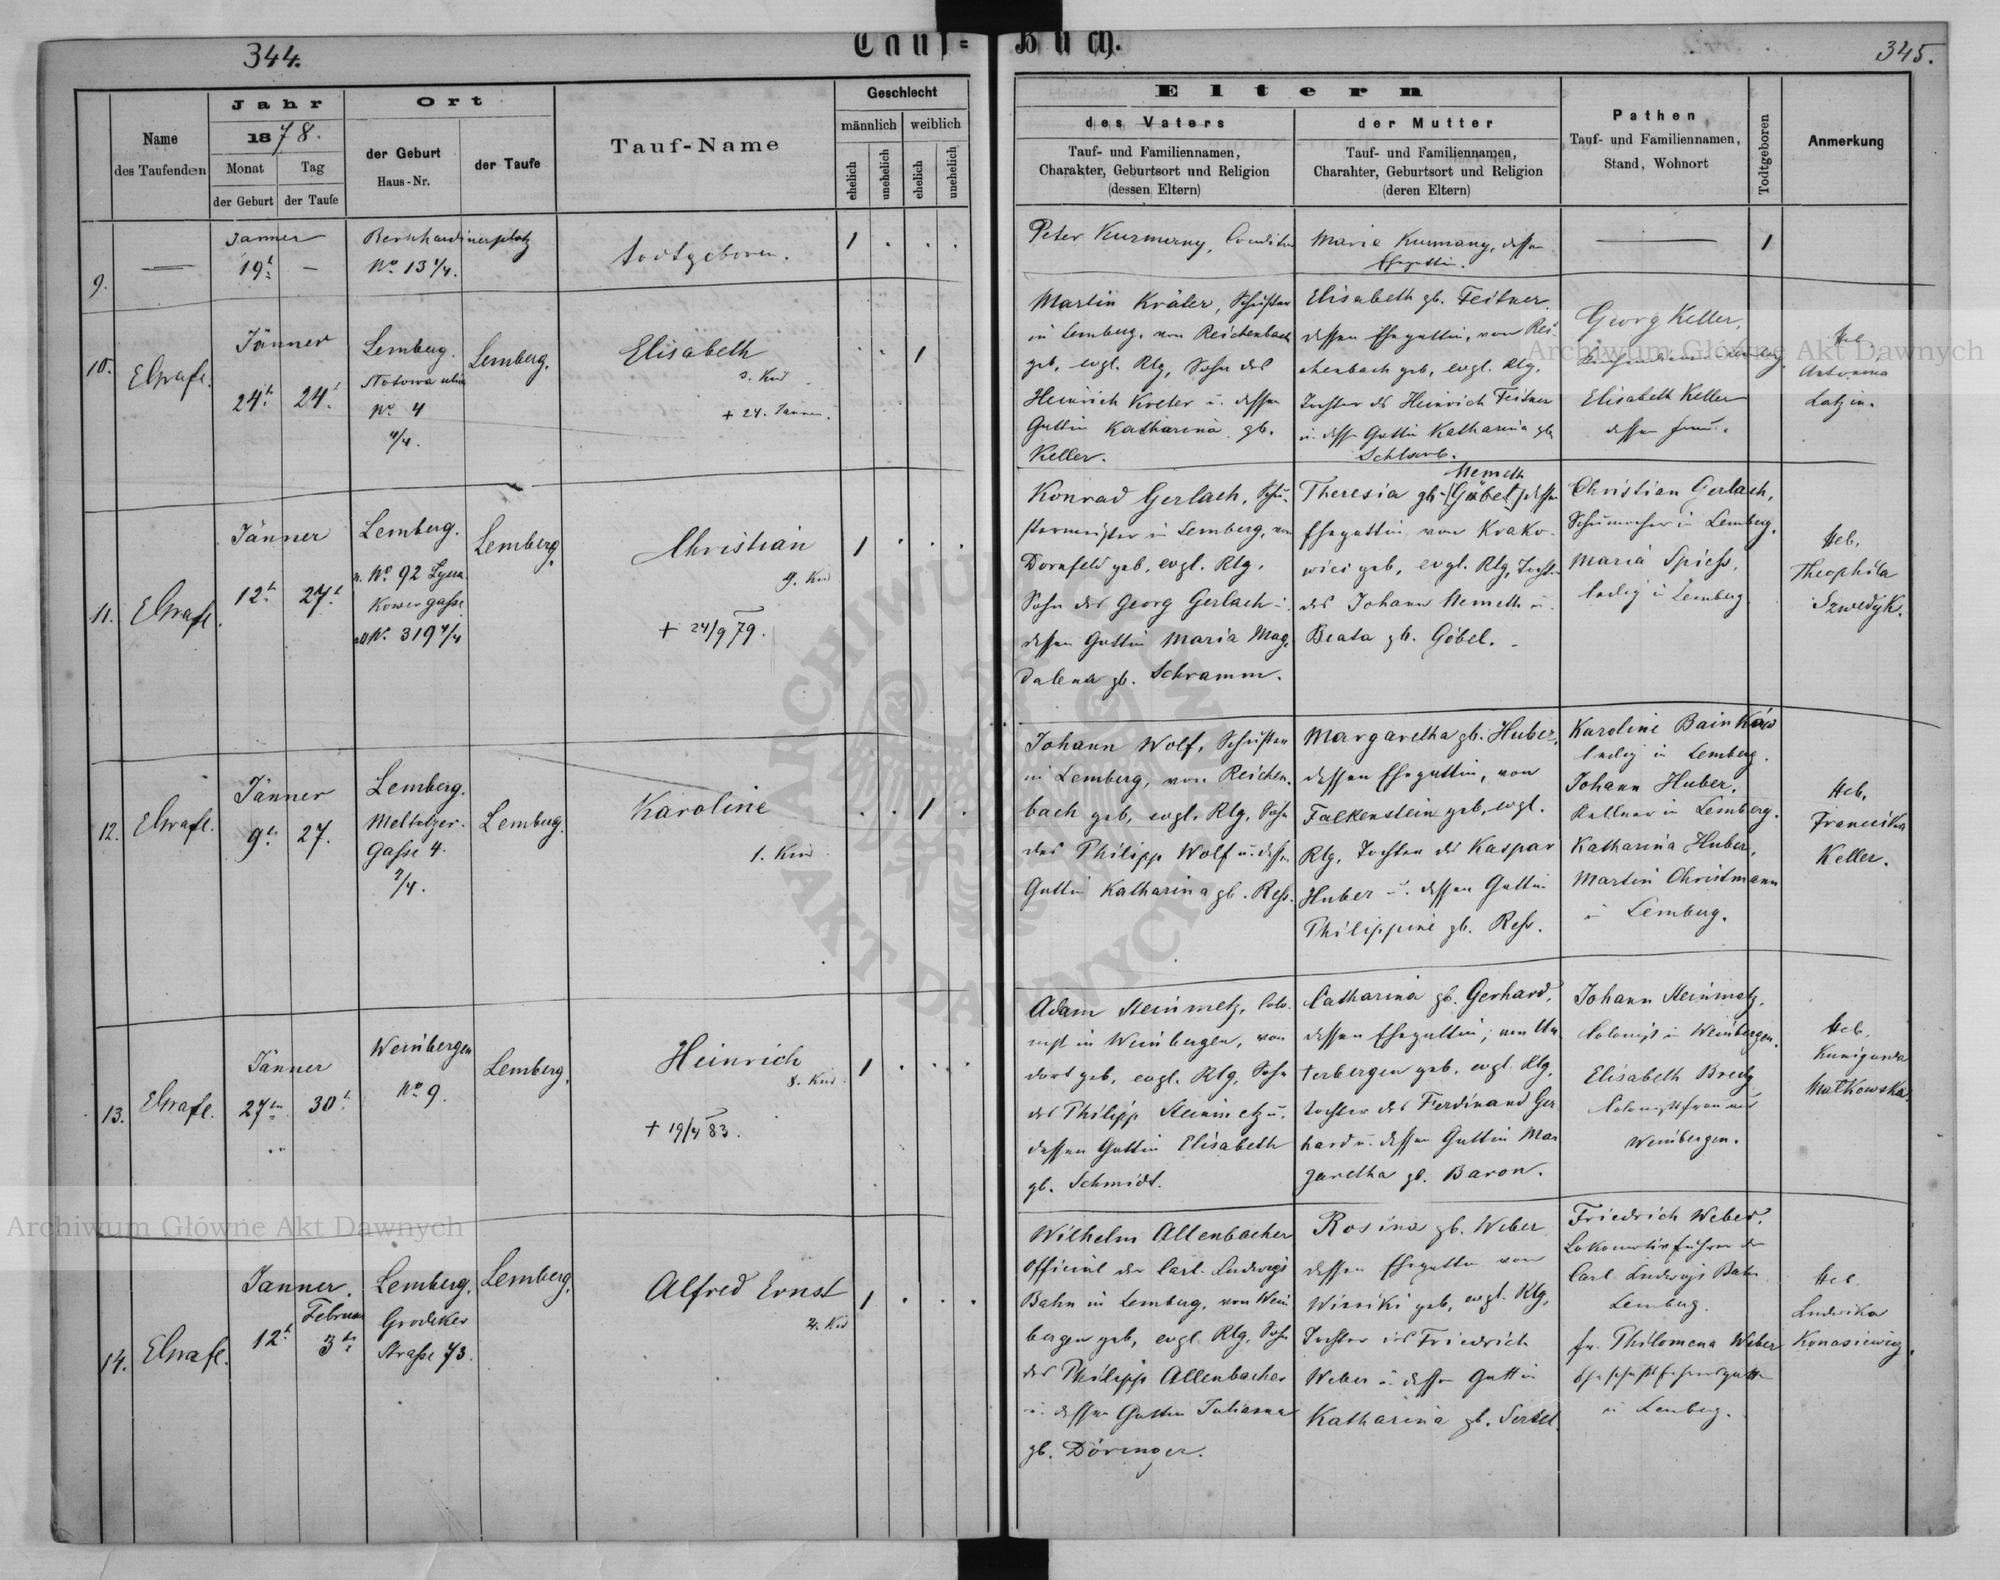 344.
Tauf-Buch.
345.
Name
des Taufenden
Jahr
1878.
Monat
Tag
der Geburt
der Taufe
Ort
der Geburt
Haus-Nr.
der Taufe
Tauf-Name
Geschlecht
männlich
weiblich
ehelich
unehelich
ehelich
unehelich
Eltern
des Vaters
Tauf- und Familiennamen,
Charakter, Geburtsort und Religion
(dessen Eltern)
der Mutter
Tauf- und Familiennamen,
Charahter, Geburtsort und Religion
(deren Eltern)
Pathen
Tauf- und Familiennamen,
Stand, Wohnort
Todtgeboren
Anmerkung
9.
—
Janner
19t. —
Bernhardinerplatz
No. 13 4/4.
todtgeboren.
1 . . .
Peter Kurmany,
Marie Kurmany, dessen
Ehegattin.
—
1
10.
EGrafl.
Jänner
24t. 24t.
Lemberg.
No 4
4/4.
Lemberg.
Elisabeth
3. Kind
+ 24. Janner.
. . 1 .
Martin Kräter,
in Lemberg, von Reichenbach
geb, evgl. Rlg, Sohn des
Heinrich Kreter u. dessen
Gattin Katharina gb.
Keller.
Elisabeth gb. Feitner
dessen Ehegattin, von Rei
chenbach geb, evgl. Rlg,
Tochter ds Heinrich Feitner
u. dessen Gattin Katharina gb
Schlarb.
Georg Keller,
Elisabeth Keller
dessen Frau.
Heb.
Antonina
Latzin.
11.
EGrafl.
Jänner
12t. 27t.
Lemberg.
n. No 92 Lycza
kower gasse
a No. 319 4/4
Lemberg.
Christian
9. Kind
+ 24/9 79.
1 . . .
Konrad Gerlach, Schu-
stermeister in Lemberg, von
Dornfeld geb, evgl. Rlg,
Sohn des Georg Gerlach u.
dessen Gattin Maria Mag.
dalena gb. Schramm.
Nemeth
Theresia gb. [Göbel] dessen
Ehegattin von Krako-
wici geb, evgl. Rlg, Tochter
des Johann Nemeth u.
Beata gb. Göbel.
Christian Gerlach,
Schumacher in Lemberg.
Maria Spiess,
ledig in Lemberg
Heb.
Theophila
Szwedyk.
12.
EGrafl.
Jänner
9t. 27.
Lemberg.
Meltzer-
gasse 4.
2/4.
Lemberg.
Karoline
1. Kind
. . 1 .
Johann Wolf,
in Lemberg, von Reichen-
bach geb, evgl. Rlg, Sohn
des Philipp Wolf u. dessen
Gattin Katharina gb. Ress.
Margaretha gb. Huber,
dessen Ehegattin, von
Falkenstein geb, evgl.
Rlg, Tochter ds Kaspar
Huber u. dessen Gattin
Philippine gb. Ress.
Karoline
ledig in Lemberg.
Johann Huber,
Kellner in Lemberg.
Katharina Huber,
Martin Christmann
in Lemberg.
Heb.
Franciska
Keller.
13.
EGrafl.
Jänner
27tn 30t.
Weinbergen
No 9.
Lemberg.
Heinrich
8. Kind
+ 19/4 83.
1 . . .
Adam Steinmetz, Colo-
nist in Weinbergen, von
dort geb, evgl. Rlg, Sohn
des Philipp Steinmetz u.
dessen Gattin Elisabeth
gb. Schmidt.
Catharina gb. Gerhard,
dessen Ehegattin, von Un
terbergen geb, evgl. Rlg,
Tochter des Ferdinand Ger
hard u. dessen Gattin Mar
garetha gb. Baron.
Johann Steinmetz,
Colonist in Weinbergen.
Elisabeth Bredy
Colonistfrau aus
Weinbergen.
Heb.
Kunigunda
Malkowska.
14.
EGrafl.
Janner.
Februar
12t. 3tn
Lemberg.
Grodeker
Strasse 73.
Lemberg.
Alfred Ernst
4. Kind
1 . . .
Wilhelm Allenbacher
Official der Carl Ludwigs
Bahn in Lemberg, von Wein
bergen geb, evgl. Rlg, Sohn
des Philipp Allenbacher
u. dessen Gattin Juliana
gb. Döringer.
Rosina gb. Weber
dessen Ehegattin von
geb, evgl. Rlg,
Tochter des Friedrich
Weber u. dessen Gattin
Katharina gb.
Friedrich Weber,
Lokomotivführer der
Carl Ludwigs Bahn
Lemberg.
Fr. Philomena Weber
in Lemberg.
Heb.
Ludwika
Konasiewicz.
Archiwum Główne Akt Dawnych
Archiwum Główne Akt Dawnych
ARCHIWUM GŁÓWNE AKT DAWNYCH